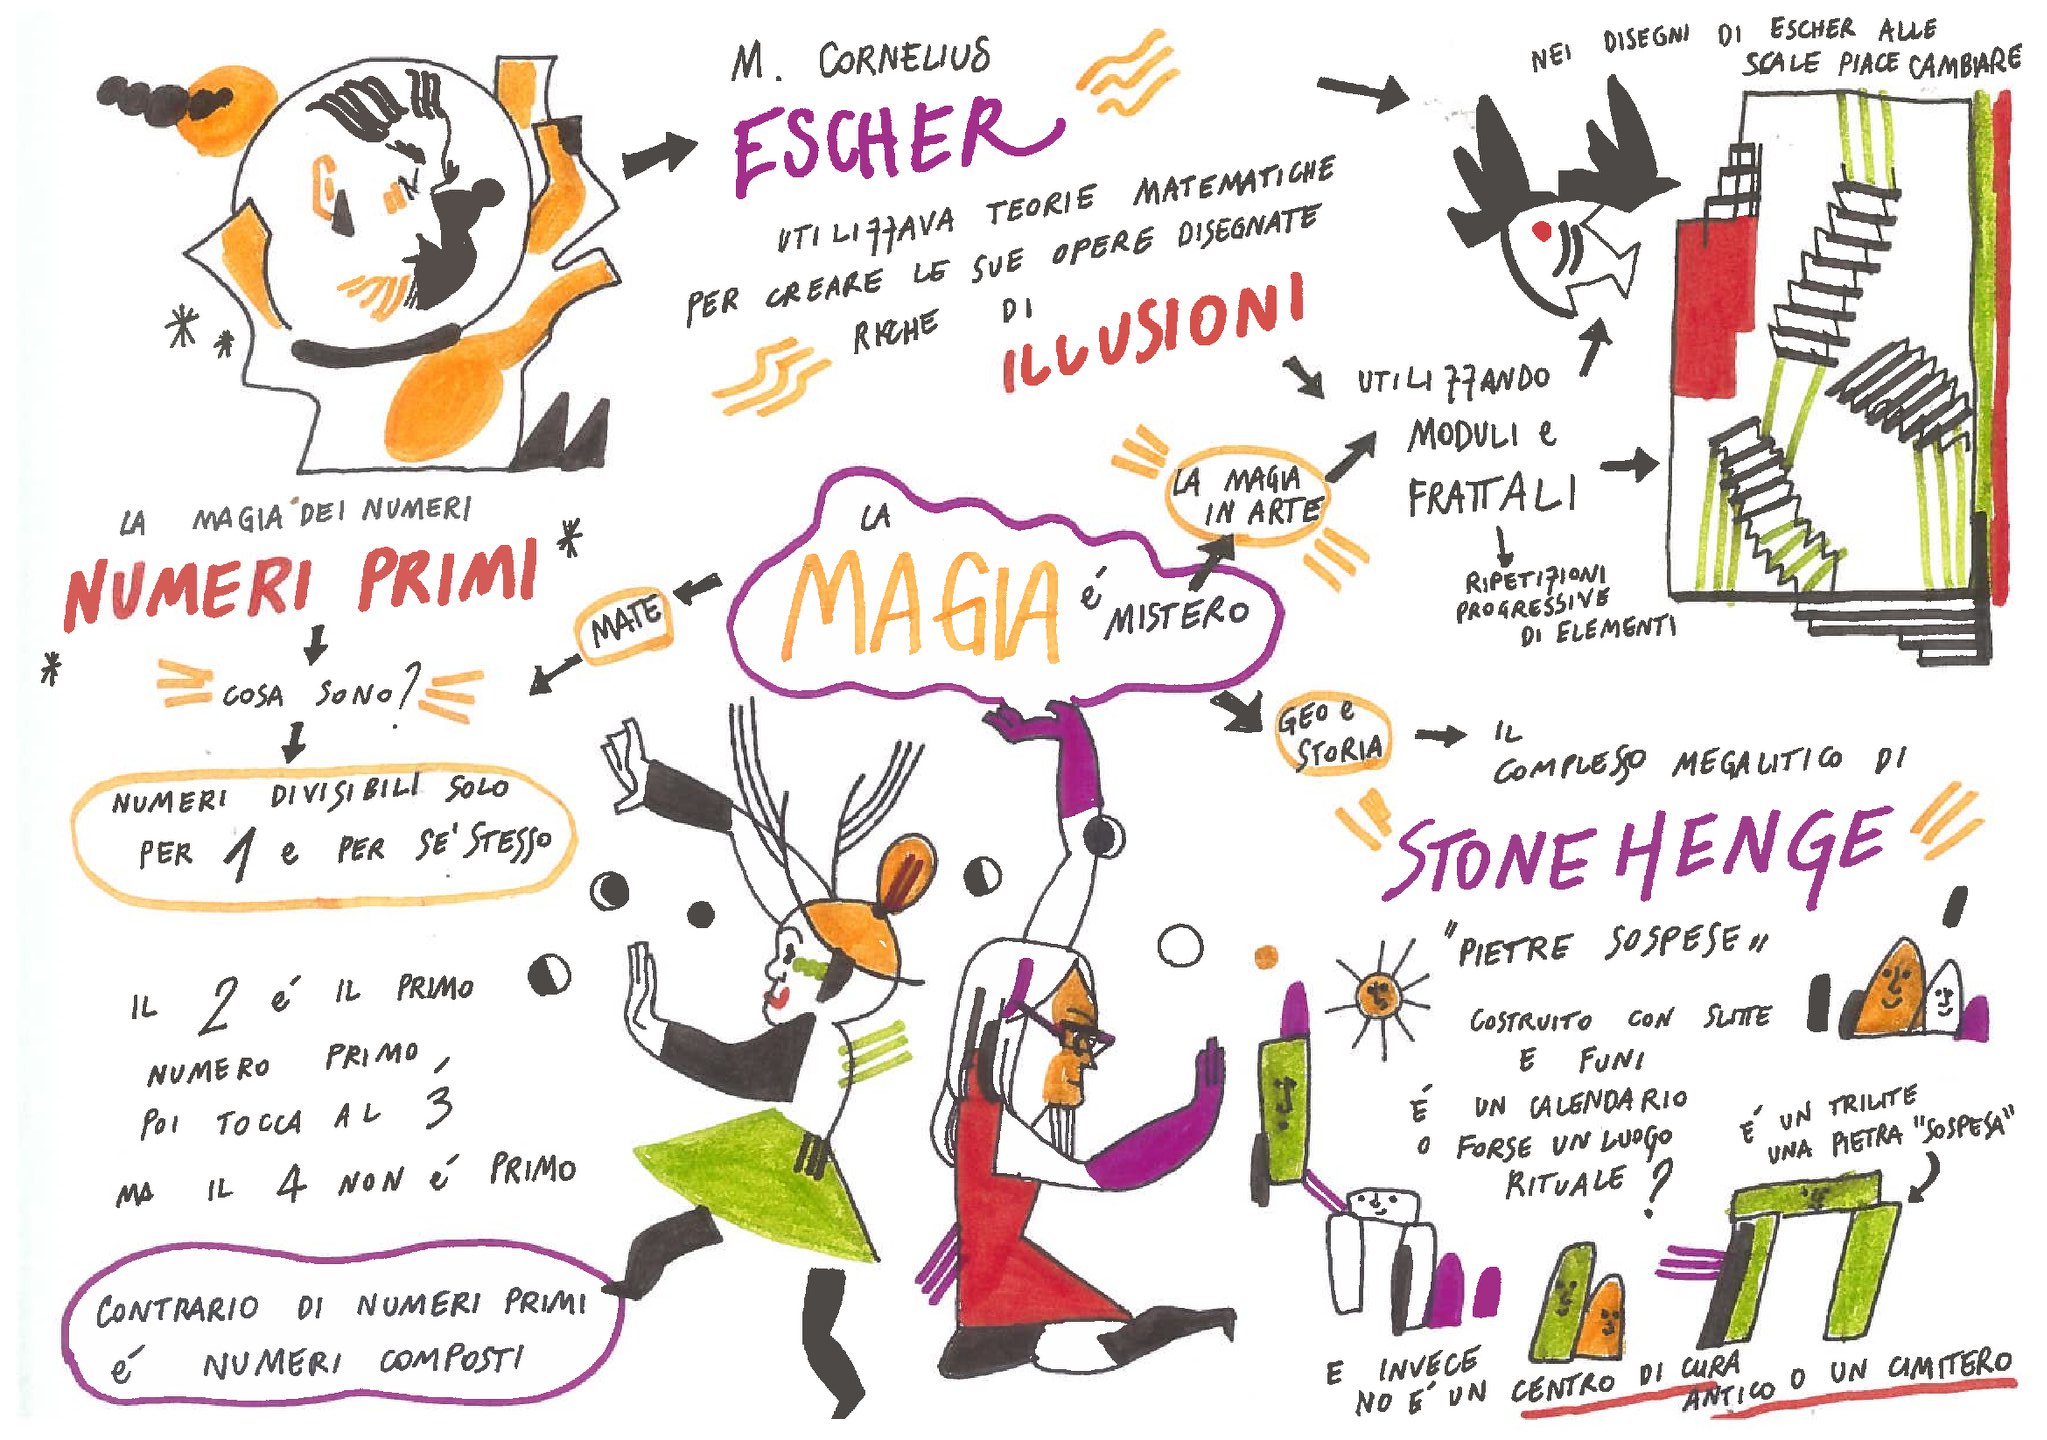 M. CORNELIUS
ESCHER
UTILIZZAVA TEORIE MATEMATICHE
PER CREARE LE SUE OPERE DISEGNATE
RICHE DI
ILLUSIONI
NEI DISEGNI DI ESCHER ALLE
SCALE PIACE CAMBIARE
LA MAGIA
IN ARTE
UTILIZZANDO
MODULI e
FRATTALI
RIPETIZIONI
PROGRESSIVE
DI ELEMENTI
LA
MAGIA
é MISTERO
MATE
LA MAGIA DEI NUMERI
NUMERI PRIMI
COSA SONO?
NUMERI DIVISIBILI SOLO
PER 1 e PER SE' STESSO
IL 2 é IL PRIMO
NUMERO PRIMO
POI TOCCA AL 3
MA IL 4 NON é PRIMO
CONTRARIO DI NUMERI PRIMI
é NUMERI COMPOSTI
GEO e
STORIA
IL
COMPLESSO MEGALITICO DI
STONE HENGE
"PIETRE SOSPESE"
COSTRUITO CON SLITTE
E FUNI
É UN CALENDARIO
O FORSE UN LUOGO
RITUALE?
É UN TRILITE
UNA PIETRA "SOSPESA"
E INVECE
NO E' UN CENTRO DI CURA
ANTICO O UN CIMITERO